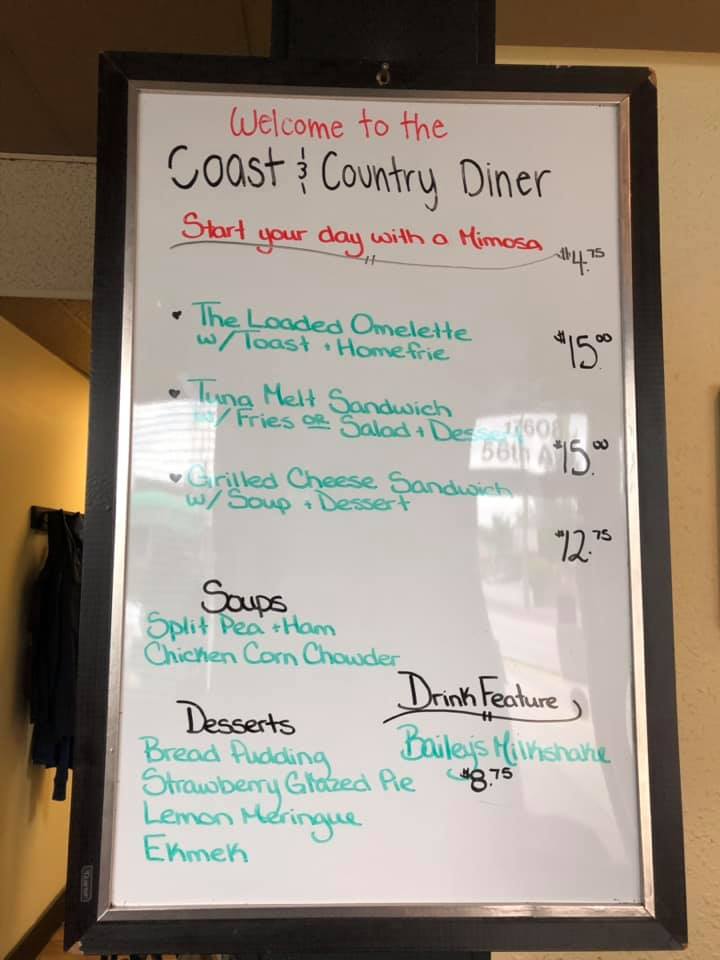 Welcome to the
Coast & Country Diner
Start your day with a Mimosa $4.75
• The Loaded Omelette
w/ Toast + Homefrie $15.00
• Tuna Melt Sandwich
w/ Fries OR Salad + Dessert
$15.00
• Grilled Cheese Sandwich
w/ Soup + Dessert
$12.75
Soups
Split Pea + Ham
Chicken Corn Chowder
Drink Feature
Bailey's Milkshake
$8.75
Desserts
Bread Pudding
Strawberry Glazed Pie
Lemon Meringue
Ekmek